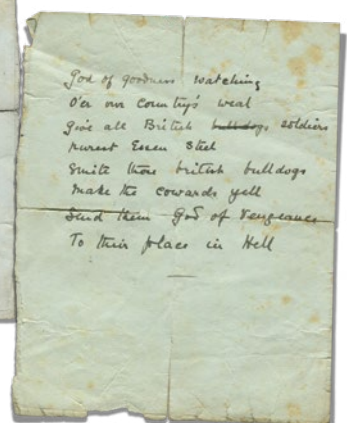 God of goodness watching
O'er our Country's weal
Give all British bulldogs soldiers
purest Essen Steel
Smite those british bulldogs
make the cowards yell
Send them God of Vengeance
To their place in Hell